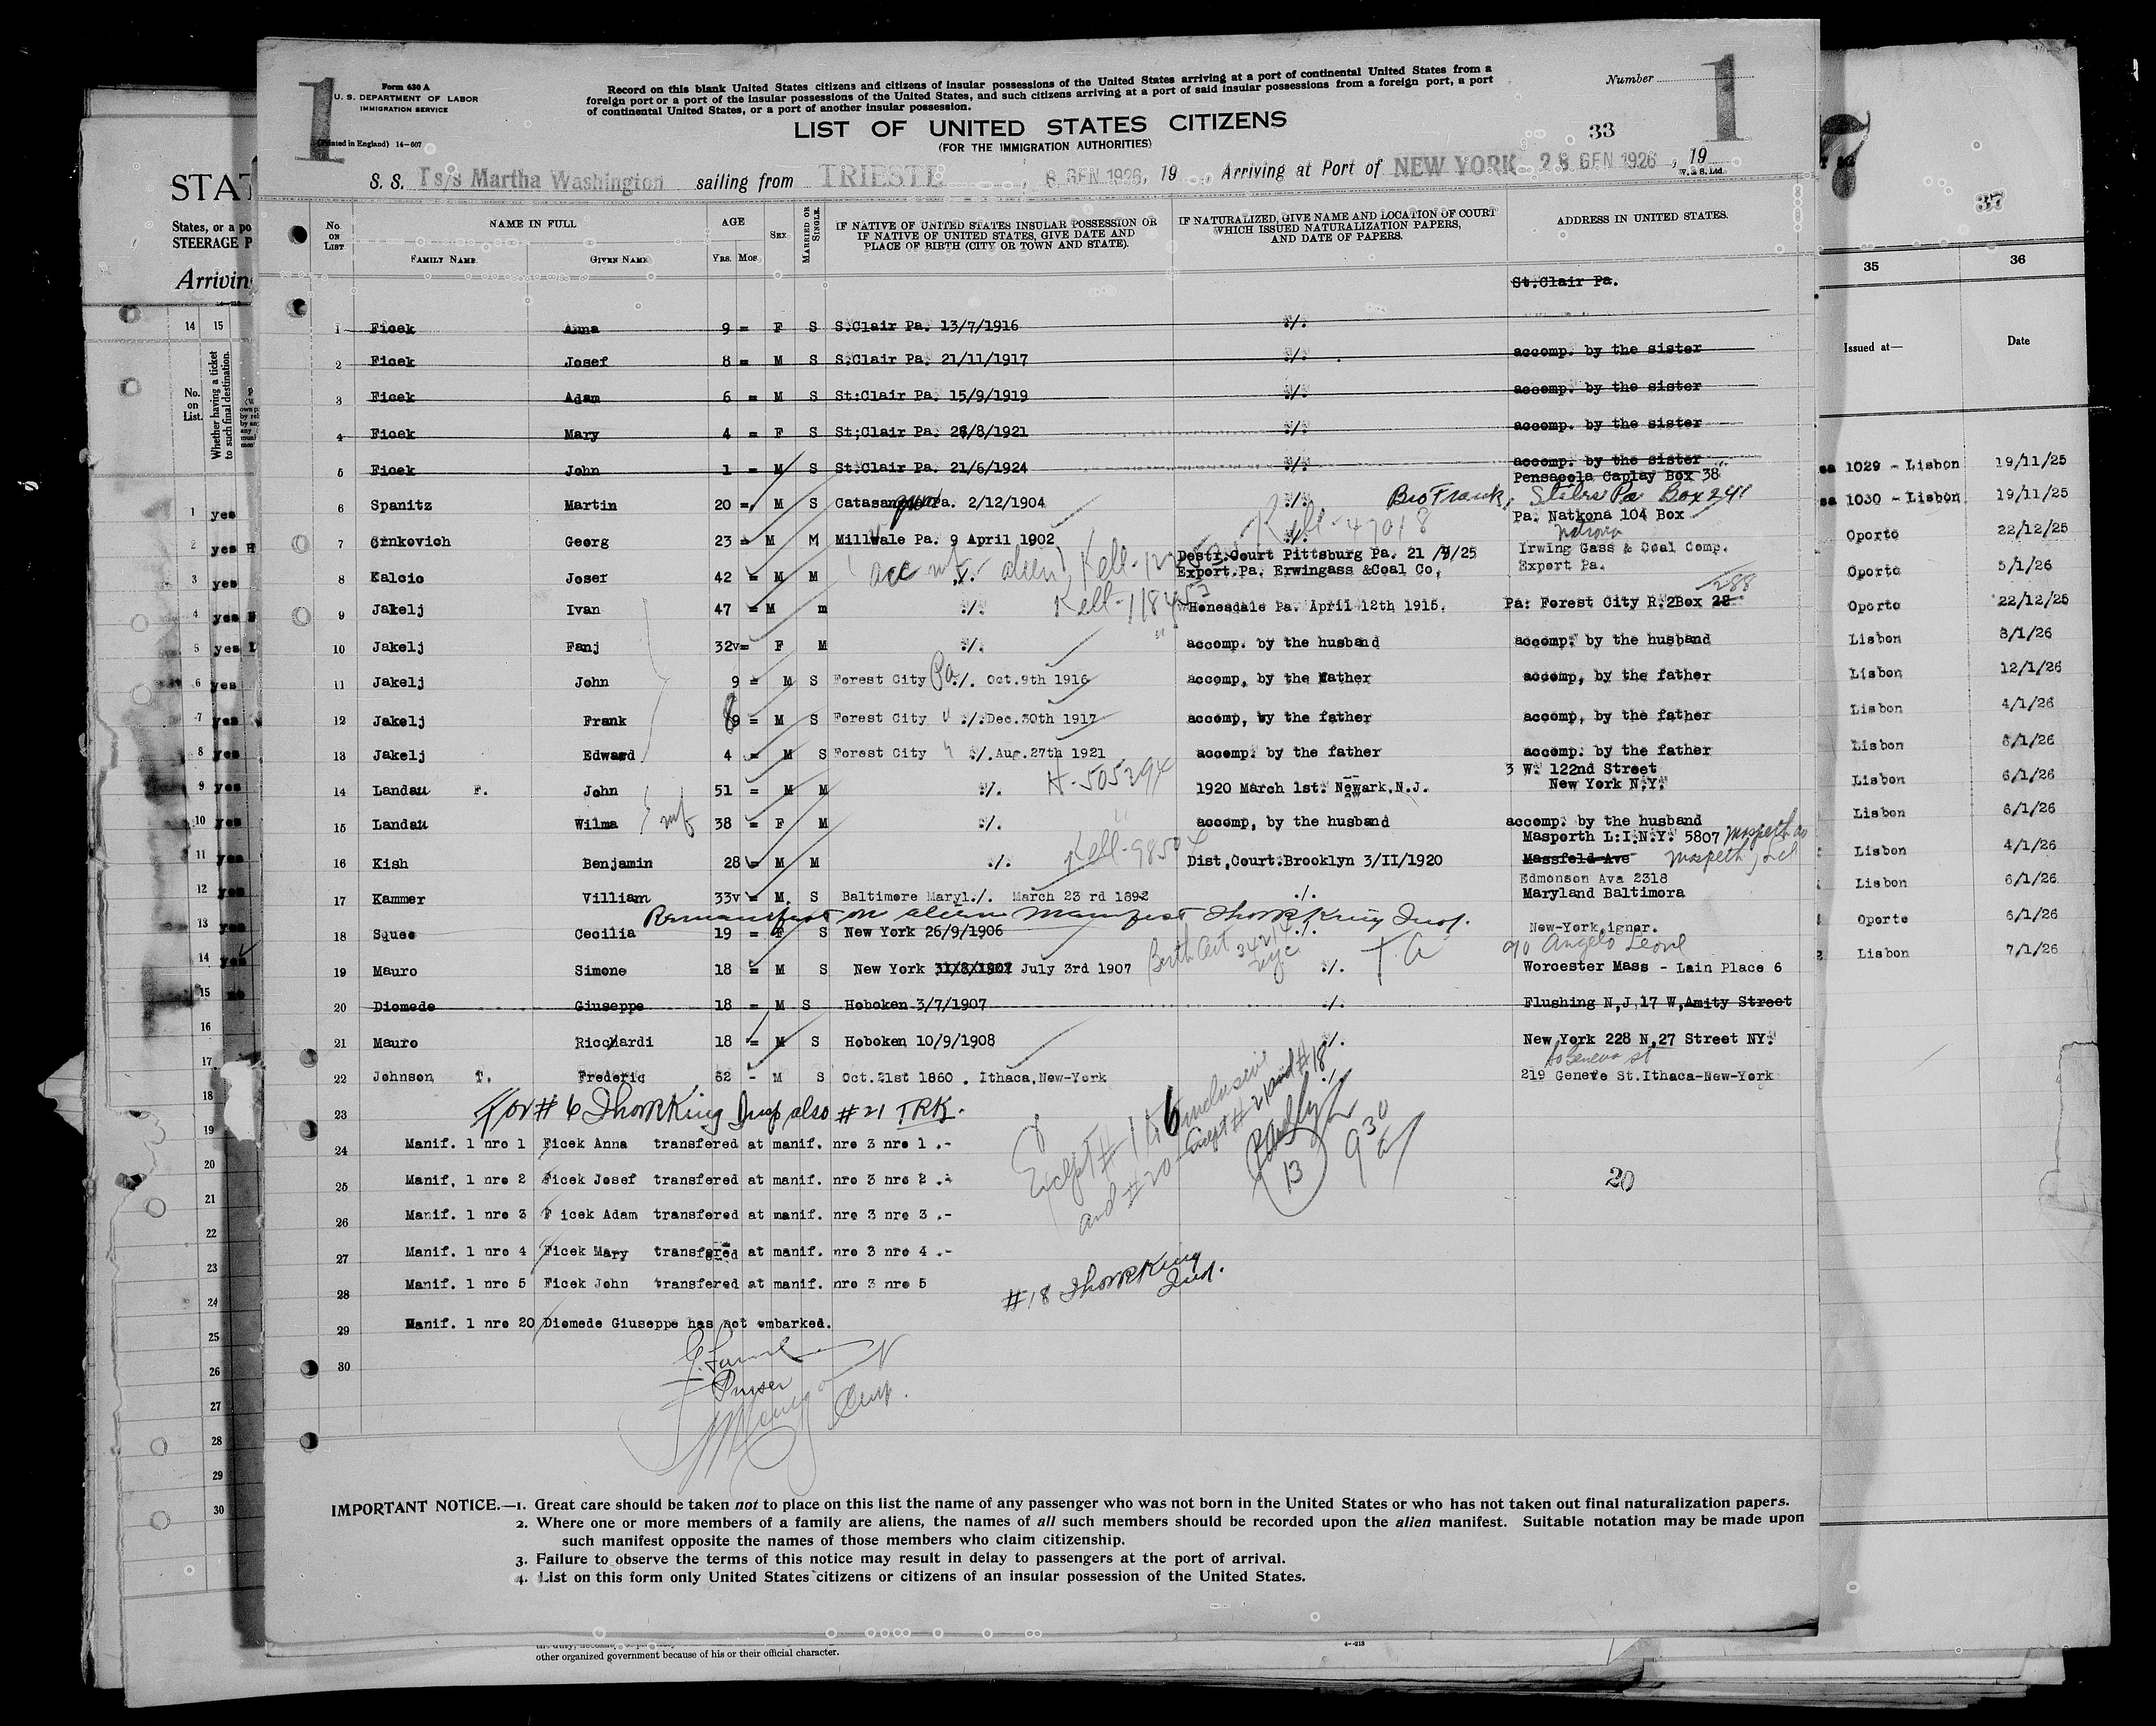 1
1
Form 630 A
U. S. DEPARTMENT OF LABOR
IMMIGRATION SERVICE
(Printed in England) 14-607
Record on this blank United States citizens and citizens of insular possessions of the United States arriving at a port of continental United States from a
foreign port or a port of the insular possessions of the United States, and such citizens arriving at a port of said insular possessions from a foreign port, a port
of continental United States, or a port of another insular possession.
Number
LIST OF UNITED STATES CITIZENS
(FOR THE IMMIGRATION AUTHORITIES)
33
S. S. Ts/s Martha Washington sailing from TRIESTE, 8 GEN 1926, 19 , Arriving at Port of NEW YORK 28 GEN 1926, 19
W. & S. Ltd.
No. ON LIST
NAME IN FULL
FAMILY NAME
GIVEN NAME
AGE
YRS. MOS.
SEX
MARRIED OR SINGLE.
IF NATIVE OF UNITED STATES INSULAR POSSESSION OR
IF NATIVE OF UNITED STATES, GIVE DATE AND
PLACE OF BIRTH (CITY OR TOWN AND STATE).
IF NATURALIZED, GIVE NAME AND LOCATION OF COURT
WHICH ISSUED NATURALIZATION PAPERS,
AND DATE OF PAPERS.
ADDRESS IN UNITED STATES.
St.Clair Pa.
1 Ficek Anna 9 = F S S.Clair Pa. 13/7/1916 ./.
2 Ficek Josef 8 = M S S.Clair Pa. 21/11/1917 ./. accomp. by the sister
3 Ficek Adam 6 = M S St:Clair Pa. 15/9/1919 ./. accomp. by the sister
4 Ficek Mary 4 = F S St;Clair Pa. 28/8/1921 ./. accomp. by the sister
5 Ficek John 1 = M S St.Clair Pa. 21/6/1924 ./. accomp. by the sister
Pensacola Caplay Box 38
6 Spanitz Martin 20 = M S Catasanqua Pa. 2/12/1904 ./. Bro Frank, Stiles Pa Box 241
Pa. Natkona 104 Box
Natrona
7 Crnkovich Georg 23 = M M Millvale Pa. 9 April 1902 ./. Kell-47018
Destr.Court Pittsburg Pa. 21/9/25 Irwing Gass & Coal Comp.
8 Kalcic Josef 42 = M M ./. Export.Pa. Erwingass &Coal Co, Export Pa.
Kell-118453
288
9 Jakelj Ivan 47 = M m ./. Honesdale Pa. April 12th 1915. Pa: Forest City R.2Box 28
10 Jakelj Fanj 32v= F M ./. accomp. by the husband accomp. by the husband
11 Jakelj John 9 = M S Forest City Pa. ./. Oct.9th 1916 accomp, by the father accomp, by the father
12 Jakelj Frank 8 = M S Forest City " ./.Dec.30th 1917 accomp, by the father accomp, by the father
13 Jakelj Edward 4 = M S Forest City " ./.Aug.27th 1921 accomp. by the father accomp. by the father
3 W. 122nd Street
14 Landau F. John 51 = M M ./. 1920 March 1st. Newark,N.J. New York N.Y.
15 Landau Wilma 38 = F M ./. accomp, by the husband accomp. by the husband
Masporth L:I.N.Y. 5807 Maspeth av
16 Kish Benjamin 28 = M M ./. Kell-98504 Dist,Court.Brooklyn 3/II/1920 Massfeld Ave Maspeth, L I
Edmonson Ava 2318
17 Kammer Villiam 33v = M. S Baltimore Maryl./. March 23 rd 1892 ./. Maryland Baltimora
Remanifest on alien manifest ThorKKing Insp.
18 Squeo Cecilia 19 = F S New York 26/9/1906 ./. New-York,ignor.
c/o Angelo Leone
19 Mauro Simone 18 = M S New York 31/8/1907 July 3rd 1907 Birth Cert NYC ./. Worcester Mass - Lain Place 6
20 Diomede Giuseppe 18 = M S Hoboken 3/7/1907 ./. Flushing N,J,17 W,Amity Street
21 Mauro Ricchardi 18 = M S Hoboken 10/9/1908 ./. New York 228 N,27 Street NY.
22 Johnson T. Frederic 62 - M S Oct.21st 1860 . Ithaca,New-York ./. 219 Geneve St.Ithaca-New-York
23 for #6 ThorKKing Insp also #21 TRK.
24 Manif. 1 nro 1 Ficek Anna transfered at manif. nro 3 nro 1 .-
25 Manif, 1 nro 2 Ficek Josef transfered at manif. nro 3 nro 2 .-
26 Manif. 1 nro 3 F icek Adam transfered at manif. nro 3 nro 3 .-
27 Manif. 1 nro 4 Ficek Mary transfered at manif. nro 3 nro 4 .-
28 Manif. 1 nro 5 Ficek John transfered at manif. nro 3 nro 5
29 Manif. 1 nro 20 Diomede Giuseppe has not embarked.
30
Except # 1 to 6 inclusive
and #20 Except #21 and #18
13
930
20
#18 ThorKKing
Ind.
Purser
IMPORTANT NOTICE.—1. Great care should be taken not to place on this list the name of any passenger who was not born in the United States or who has not taken out final naturalization papers.
2. Where one or more members of a family are aliens, the names of all such members should be recorded upon the alien manifest. Suitable notation may be made upon
such manifest opposite the names of those members who claim citizenship.
3. Failure to observe the terms of this notice may result in delay to passengers at the port of arrival.
4. List on this form only United States citizens or citizens of an insular possession of the United States.
other organized government because of his or their official character.
4-213
STAT
States, or a po
STEERAGE P
Arrivin
14 15
No. on List.
Whether having a ticket to such final destination.
1 yes
2 yes
3 yes
4 yes
5 yes
6 yes
7 yes
8 yes
9 yes
10 yes
11 yes
12 yes
13 yes
14 yes
15 no
16
17
18
19
20
21
22
23
24
25
26
27
28
29
30
7
37
35 36
Issued at— Date
1029 - Lisbon 19/11/25
1030 - Lisbon 19/11/25
Oporto 22/12/25
Oporto 5/1/26
Oporto 22/12/25
Lisbon 8/1/26
Lisbon 12/1/26
Lisbon 4/1/26
Lisbon 8/1/26
Lisbon 6/1/26
Lisbon 6/1/26
Lisbon 4/1/26
Lisbon 6/1/26
Oporto 6/1/26
Lisbon 7/1/26